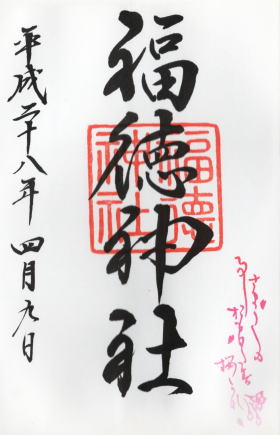 福徳神社
福徳
神社
平成二十八年 四月九日